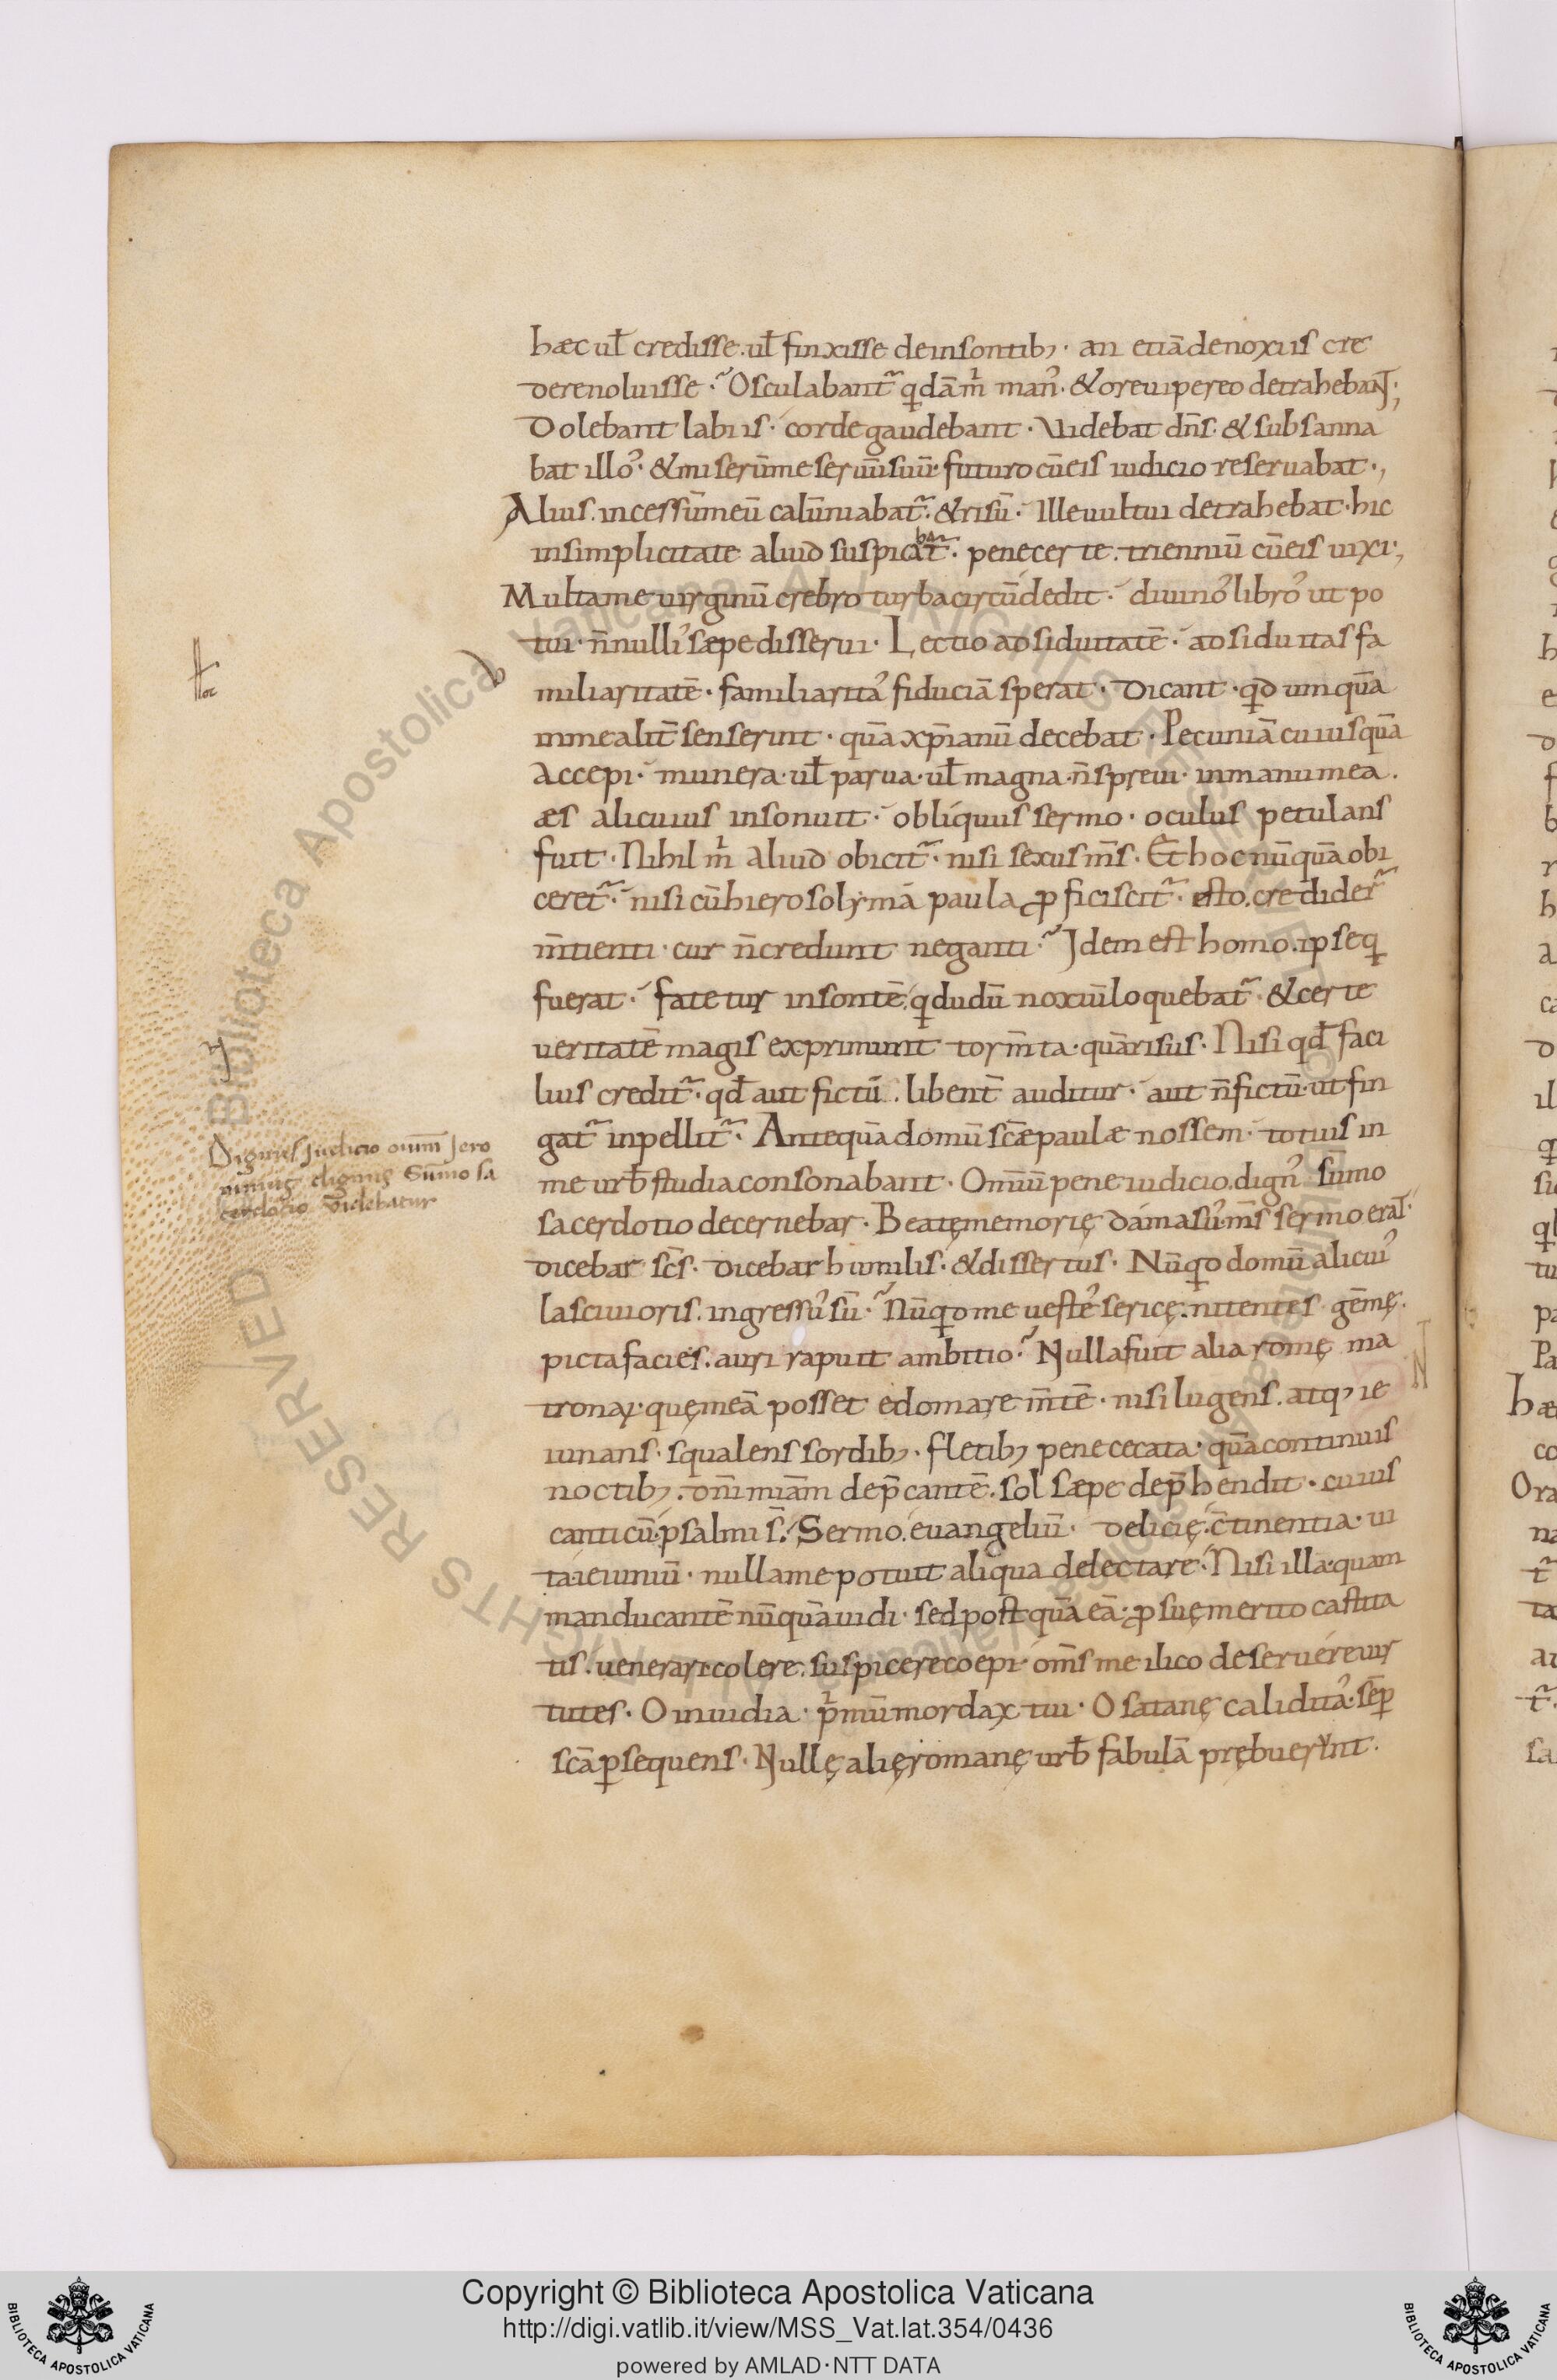 hæc ul̄ credisse. ul̄ finxisse de insontib; · an etiā de noxiis cre
dere noluisse · Osculabant̃ qdā m̍ man᾽ · & ore uipereo detrahebant;
Dolebant labiis · corde gaudebant · Videbat dn̄s · & subsanna
bat illo᾽ · & miserū me seruū suū · futuro cū eis iudicio reseruabat ·,
Alius. incessū meū calūniabat̃ · & risū · Ille uultui detrahebat · hic
in simplicitate aliud suspicabat̃ · pene certe. trienniū cū eis uixi ·,
Multa me uirginū crebro turba circūdedit · diuino᾽ libro᾽ ut po
tui · n̄nulli᾽ sæpe disserui · Lectio adsiduitatē · adsiduitas fa
miliaritatē · familiarita᾽ fiduciā sperat · Dicant · qd umquā
in me alit̄ senserint · quā xp̄ianū decebat · Pecuniā cuiusquā
accepi · munera · ul̄ parua · ul̄ magna · n̄ spreui · in manu mea ·
æs alicuius insonuit · obliquus sermo · oculus petulans
fuit · Nihil m̍ aliud obicit̃ · nisi sexus m̄s · Et hoc nūquā obi
ceret̃ · nisi cū hierosolymā paula ꝓficiscit̃ · esto. credider̃
m̄tienti · cur n̄ credunt neganti · Idem est homo. ipse q
fuerat · fatetur insontē. q dudū noxiū loquebat̃ · & certe
ueritatē magis exprimunt torm̄ta · quā risus · Nisi qđ faci
lius credit̃ · qđ aut fictū. libent̄ auditur · aut n̄ fictū · ut fin
gat̃ inpellit̃ · Antequā domū scǣ paulæ nossem · totius in
me urb̄ studia consonabant · Omīū pene iudicio. dign᾽ sūmo
sacerdotio decernebar · Beatę memorię damasu᾽ m̄s sermo erat̄ ·
dicebar sc̄s · dicebar humilis · & dissertus · Nūqd domū alicui᾽
lasciuioris. ingressu᾽ sū · Nūqd me ueste᾽ sericę. nitentes gēmę ·
picta facies. auri rapuit ambitio · Nulla fuit alia romę ma
tronaꝝ · quę meā posset edomare m̄tē · nisi lugens. atq; ie
iunans · squalens sordib; · fletib; pene cecata · quā continuis
noctib; · dn̄i miām dep̄cantē. sol sæpe dep̄hendit · cuius
canticū · psalmi s̄ · Sermo. euangeliū · delicię. c̄tinentia · ui
ta ieiuniū · nulla me potuit aliqua delectare · Nisi illa · quam
manducantē nūquā uidi · sed postquā eā · ꝓ suę merito castita
tis. uenerari colere. suspicere coepi · om̄s me ilico deseruére uir
tutes · O inuidia · p̍mū mordax tui · O satanę calidita᾽ · sēp
scā ꝑsequens · Nullę alię romanę urb̄ fabulā prębuerunt ·
hoc
Dignus Judicio omīum Jero
nimus dignus Sūmo sa
cerdotio videbatur
Biblioteca Apostolica Vaticana ALL RIGHTS RESERVED
Copyright © Biblioteca Apostolica Vaticana
http://digi.vatlib.it/view/MSS_Vat.lat.354/0436
powered by AMLAD·NTT DATA
BIBLIOTECA APOSTOLICA VATICANA
BIBLIOTECA APOSTOLICA VATICANA